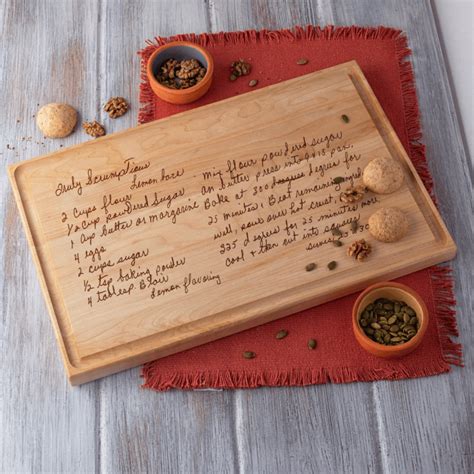 Truly Scrumptious
Lemon bars
2 cups flour
1/2 cup powdered sugar
1 cup butter or margarine
4 eggs
2 cups sugar
1/2 tsp baking powder
4 tablesp. flour
Lemon flavoring
mix flour powdered sugar
butter press into 9x13 pan.
Bake at 300 degrees for
25 minutes. Beat remaining
well, pour over hot crust,
325 degrees for 25 minutes more
cool & then cut into squares